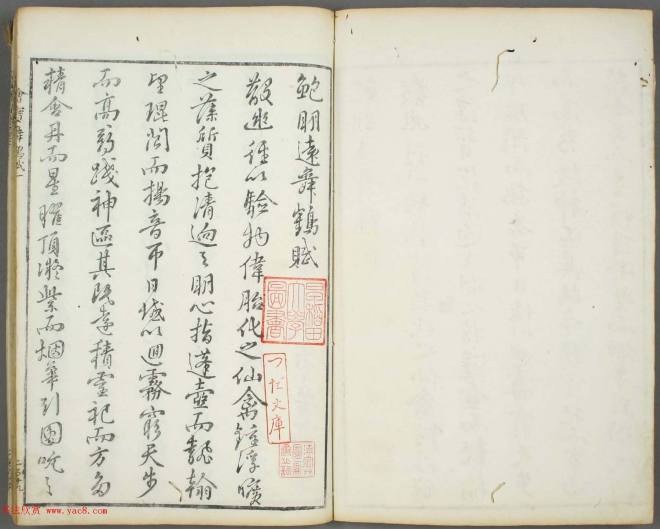 鮑明遠舞鶴賦
散幽經以驗物偉胎化之仙禽鍾浮曠
之藻質抱清迥之明心指蓬壺而翻翰
望崑閬而揚音帀日域以迴騖窮天步
而高尋踐神區其既遠積靈祀而方多
精含丹而星曜頂凝紫而烟華引員吭之
早稻田
大學
圖書
文庫
欣赏 www.yac8.com